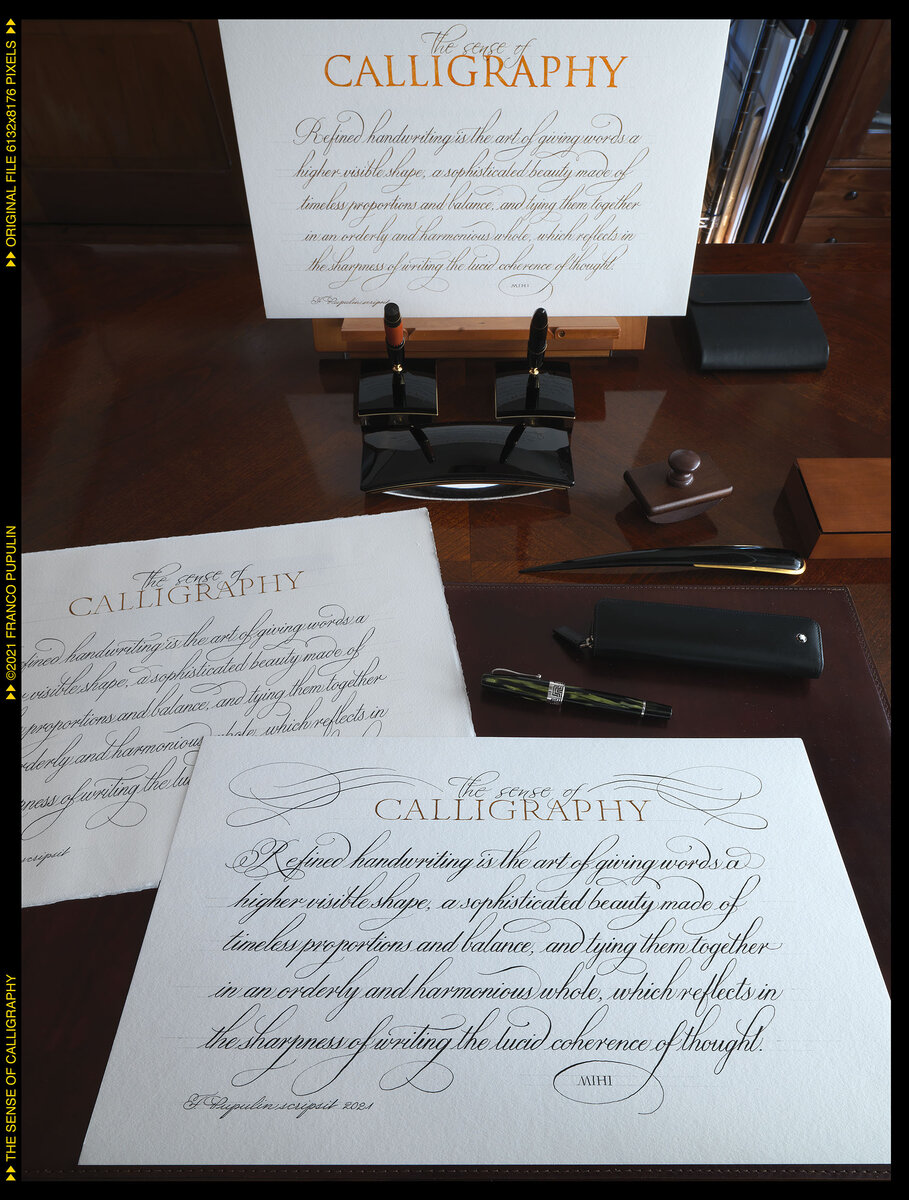 THE SENSE OF CALLIGRAPHY
©2021 FRANCO PUPULIN
ORIGINAL FILE 6132x8176 PIXELS
the sense of
CALLIGRAPHY
Refined handwriting is the art of giving words a
higher visible shape, a sophisticated beauty made of
timeless proportions and balance, and tying them together
in an orderly and harmonious whole, which reflects in
the sharpness of writing the lucid coherence of thought.
MIHI
F Pupulin scripsit
the sense of
CALLIGRAPHY
fined handwriting is the art of giving words a
visible shape, a sophisticated beauty made of
proportions and balance, and tying them together
orderly and harmonious whole, which reflects in
ness of writing the lu
scripsit
the sense of
CALLIGRAPHY
Refined handwriting is the art of giving words a
higher visible shape, a sophisticated beauty made of
timeless proportions and balance, and tying them together
in an orderly and harmonious whole, which reflects in
the sharpness of writing the lucid coherence of thought.
MIHI
F Pupulin scripsit 2021